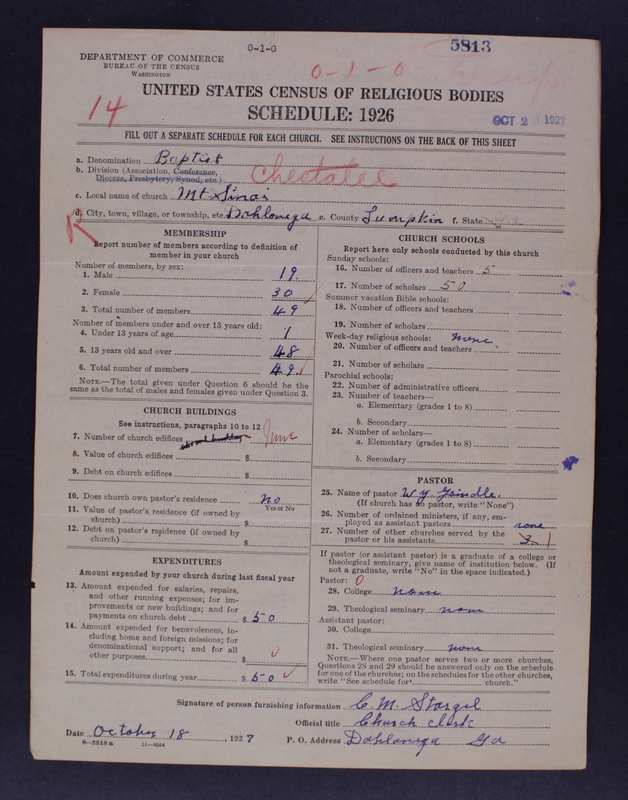 0-1-0
5813
DEPARTMENT OF COMMERCE
BUREAU OF THE CENSUS
WASHINGTON
0-1-0
UNITED STATES CENSUS OF RELIGIOUS BODIES
14
SCHEDULE: 1926
OCT 20 1927
FILL OUT A SEPARATE SCHEDULE FOR EACH CHURCH. SEE INSTRUCTIONS ON THE BACK OF THIS SHEET
a. Denomination Baptist
b. Division (Association, Conference,
Diocese, Presbytery, Synod, etc.) Chestatee
c. Local name of church Mt Sinai
d. City, town, village, or township, etc. Dahlonega e. County Lumpkin f. State Ga
R
MEMBERSHIP
Report number of members according to definition of
member in your church
Number of members, by sex:
1. Male 19
2. Female 30
3. Total number of members 49
Number of members under and over 13 years old:
4. Under 13 years of age 1
5. 13 years old and over 48
6. Total number of members 49
NOTE.—The total given under Question 6 should be the
same as the total of males and females given under Question 3.
CHURCH BUILDINGS
See instructions, paragraphs 10 to 12
7. Number of church edifices
8. Value of church edifices $
9. Debt on church edifices $
10. Does church own pastor's residence no
Yes or No
11. Value of pastor's residence (if owned by
church) $
12. Debt on pastor's residence (if owned by
church) $
EXPENDITURES
Amount expended by your church during last fiscal year
13. Amount expended for salaries, repairs,
and other running expenses; for im-
provements or new buildings; and for
payments on church debt $ 50
14. Amount expended for benevolences, in-
cluding home and foreign missions; for
denominational support; and for all
other purposes $ 0
15. Total expenditures during year $ 50
CHURCH SCHOOLS
Report here only schools conducted by this church
Sunday schools:
16. Number of officers and teachers 5
17. Number of scholars 50
Summer vacation Bible schools:
18. Number of officers and teachers
19. Number of scholars
Week-day religious schools: none
20. Number of officers and teachers
21. Number of scholars
Parochial schools:
22. Number of administrative officers
23. Number of teachers—
a. Elementary (grades 1 to 8)
b. Secondary
24. Number of scholars—
a. Elementary (grades 1 to 8)
b. Secondary
PASTOR
25. Name of pastor W. Y. Grindle
(If church has no pastor, write "None")
26. Number of ordained ministers, if any, em-
ployed as assistant pastors none
27. Number of other churches served by the
pastor or his assistants 1
If pastor (or assistant pastor) is a graduate of a college or
theological seminary, give name of institution below. (If
not a graduate, write "No" in the space indicated.)
Pastor: 0
28. College none
29. Theological seminary none
Assistant pastor:
30. College
31. Theological seminary none
NOTE.—Where one pastor serves two or more churches,
Questions 28 and 29 should be answered only on the schedule
for one of the churches; on the schedules for the other churches,
write "See schedule for church."
Signature of person furnishing information C. M. Stargel
Official title Church clerk
Date October 18, 1927 P. O. Address Dahlonega Ga
8-5518a 11-9264